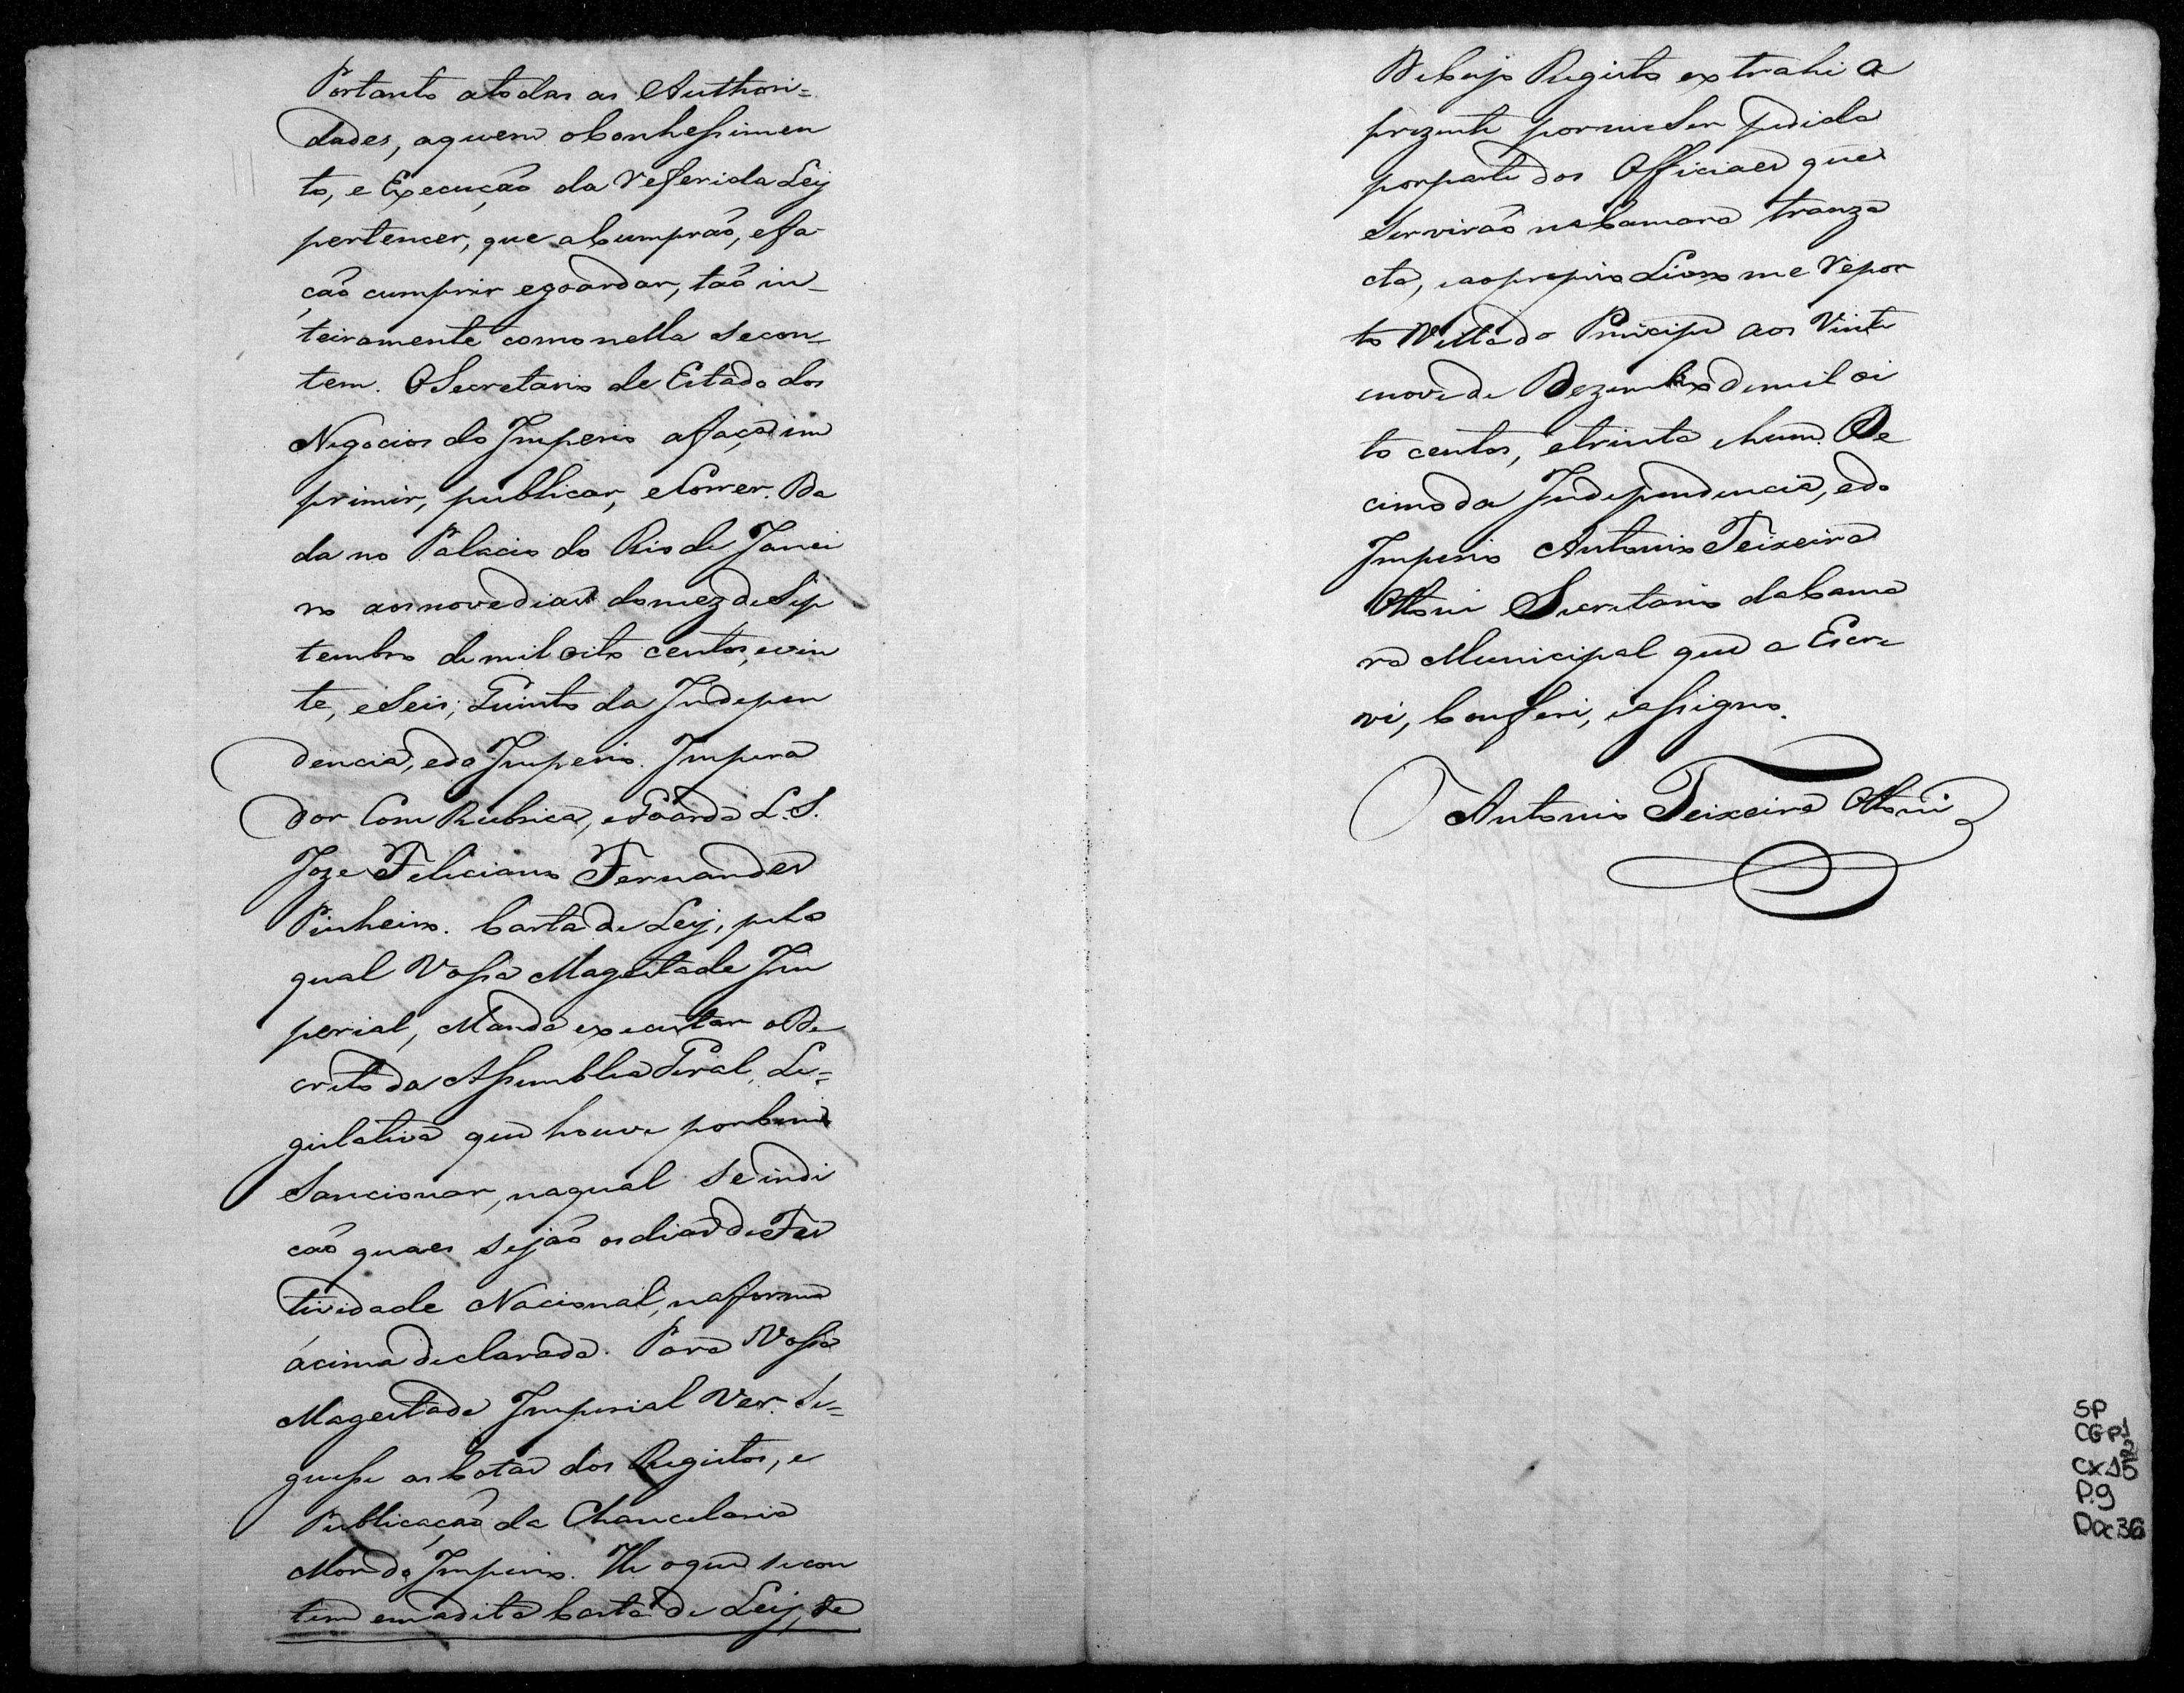 Portanto atodas as Authori=
dades, aquem oConhessimen
to, e Execução da Referida Ley
pertencer, que aCumprão, efa
ção cumprir egoardar, tão in_
teiramente como nella secon_
tem. OSecretario de Estado dos
Negocios do Imperio afaça im
primir, publicar, eCorrer. Da
da no Palacio do Rio de Janei
ro aos nove dias do mez de Sep
tembro de mil oito centos, evin
te, eSeis; Quinto da Indepen
dencia, edo Imperio. Impera
dor Com Rubrica, eGoarda L.S.
Joze Feliciano Fernandes
Pinheiro. Carta de Ley, pela
qual Vossa Magestade Im
perial, Manda executar oDe
creto da Assemblea Geral, Le=
gislativa que houve por bem
Sancionar, naqual se indi
cão quaes sejão os dias de Fes
tividade Nacional, na forma
ácima declarada. Para Vossa
Magestade Imperial Ver. Se=
guesse as Cotas dos Registos, e
Publicação da Chancelaria
Mor do Imperio. He oque secon
tem emadita Carta de Ley, de
DeCujo Registo extrahi a
prezente por me Ser pedida
por parte dos Officiaes que
Servirão na Camara tranza
cta, eao proprio Livro me repor
to Villa do Principe aos Vinte
enove de Dezembro de mil oi
to centos, etrinta ehum. De
cimo da Independencia, edo
Imperio Antonio Teixeira
Ottoni Secretario da Cama
ra Municipal que a Escre
vi, Conferi, eassigno.
Antonio Teixeira Ottoni
SP
CGP1
2
CX15
P.9
Doc36